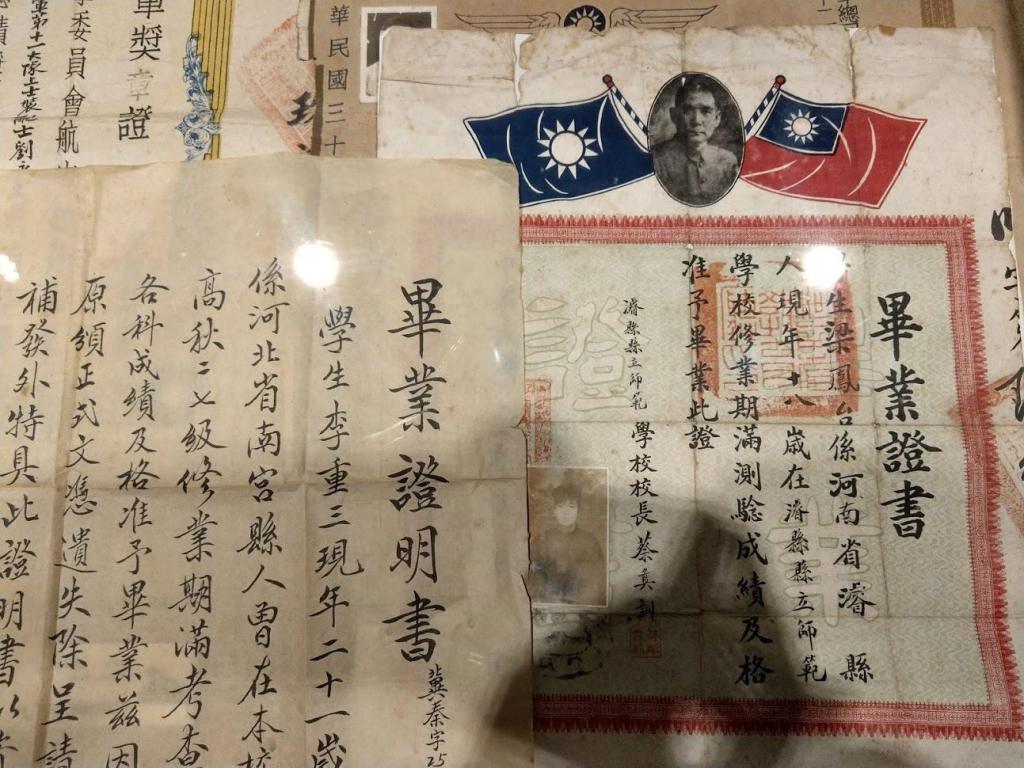 畢業證書
學生梁鳳台係河南省濬縣
人現年十八歲在濬縣縣立師範
學校修業期滿測驗成績及格
准予畢業此證
濬縣縣立師範學校校長蔡奠訓
畢業證明書
冀秦字25
學生李重三現年二十一歲
係河北省南宮縣人曾在本校
高秋二七級修業期滿考查
各科成績及格准予畢業茲因
原領正式文憑遺失除呈請
補發外特具此證明書以
華民國三十
總
軍獎章證
委員會航
軍第十一大隊上士